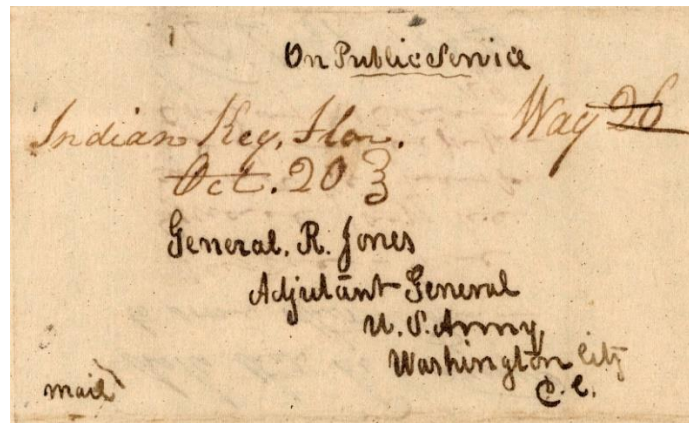 On Public Service
Indian Key, Flor. Way 26
Oct. 20 3
General. R. Jones
Adjutant General
U. S. Army,
Washington City
D. C.
mail